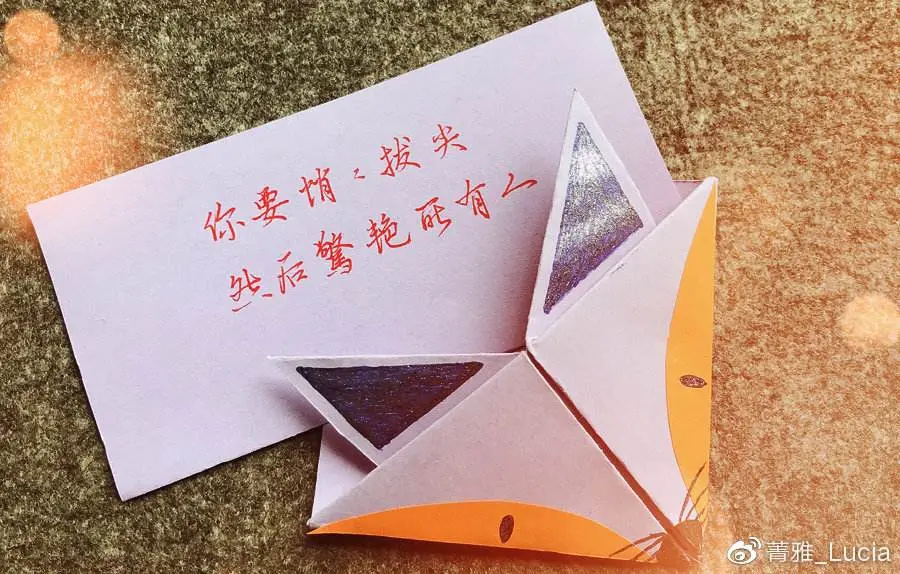 你要悄々拔尖
然后驚艳所有人
菁雅_Lucia